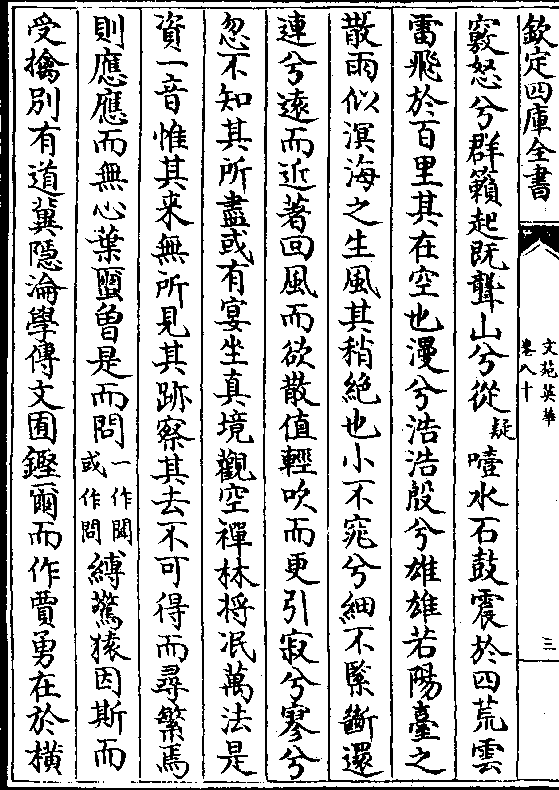 欽定四庫全書
文苑英華
卷八十
三
竅怒兮群籟起既聾山兮從疑噎水石鼓震於四荒雲
雷飛於百里其在空也漫兮浩浩殷兮雄雄若陽臺之
散雨似溟海之生風其稍絶也小不窕兮細不緊斷還
連兮遠而近著回風而欲散值輕吹而更引寂兮寥兮
忽不知其所盡或有宴坐真境觀空禪林将泯萬法是
資一音惟其来無所見其跡察其去不可得而尋繁焉
則應應而無心葉壓曾是而問一作聞或作問縛驚猿因斯而
受擒別有道冀隱淪學傳文囿鏗爾而作賈勇在於橫